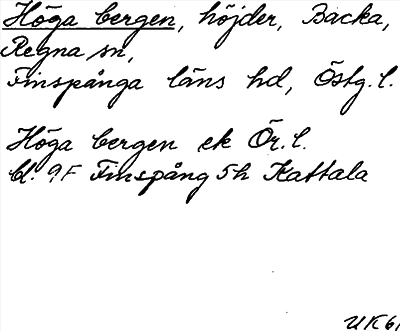 Höga bergen, höjder, Backa,
Regna sn,
Finspånga läns hd, Östg. l.
Höga bergen ek Ör. l.
bl. 9F Finspång 5h Kattala
UK 61